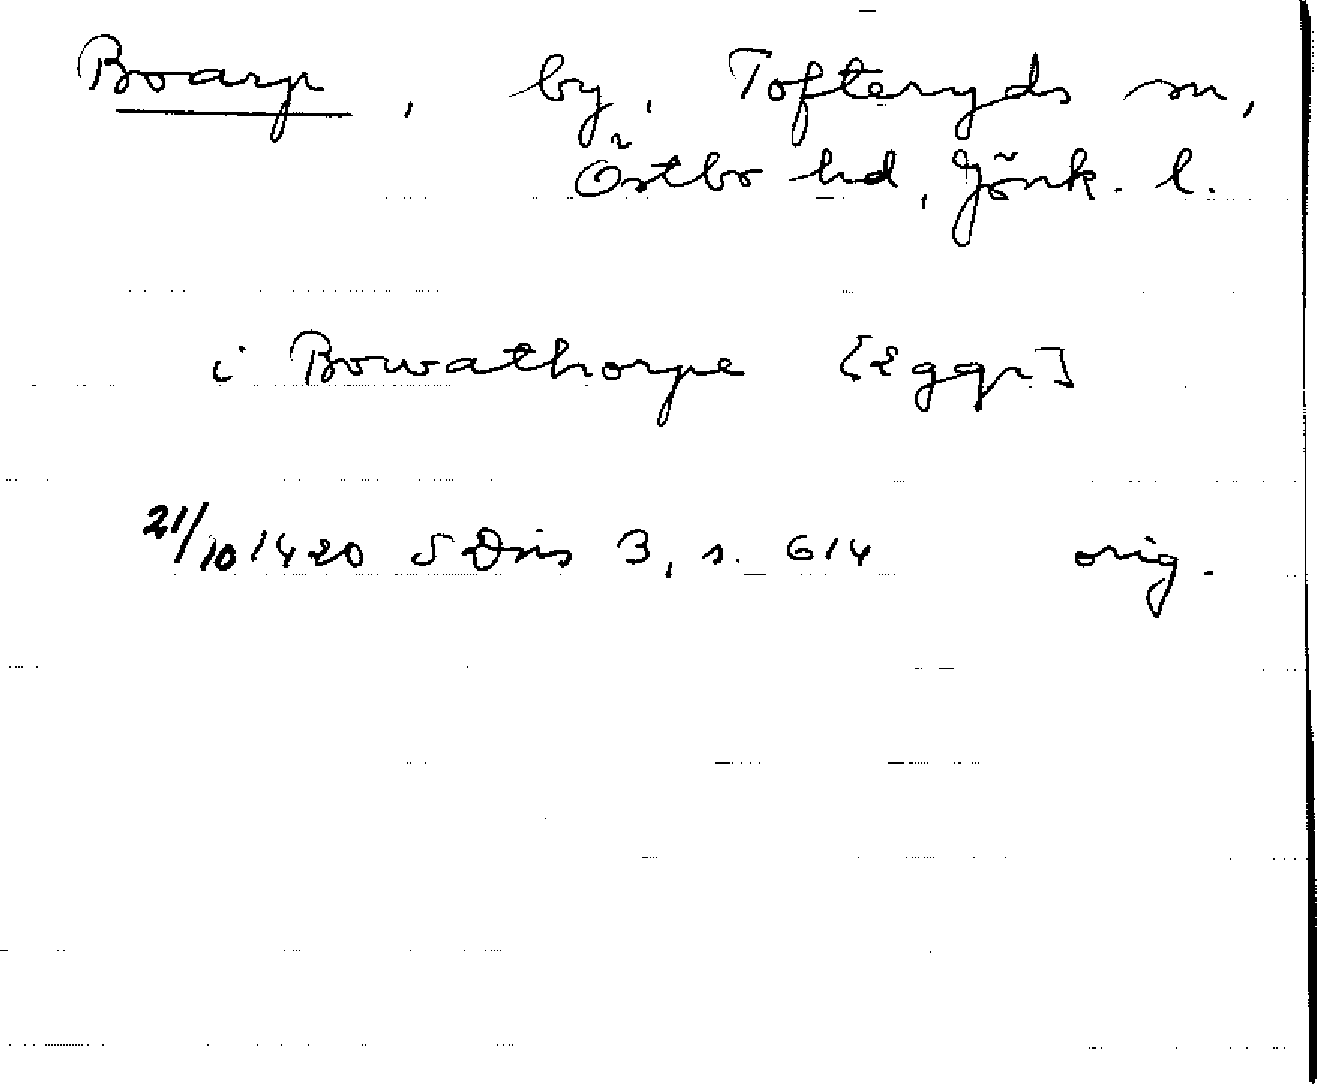 Boarp, by, Tofteryds sn,
Östbo hd, Jönk. l.
i Bowathorpe [2 ggr]
21/10 1420 SDns 3, s. 614 orig.